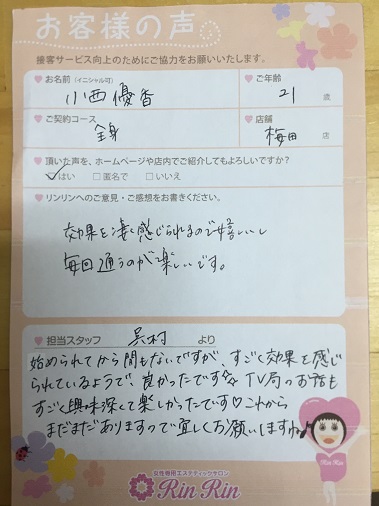 お客様の声
接客サービス向上のためにご協力をお願いいたします。
お名前(イニシャル可)
小西優香
ご年齢
21歳
ご契約コース
全身
店舗
梅田店
頂いた声を、ホームページや店内でご紹介してもよろしいですか?
はい □匿名で □いいえ
リンリンへのご意見・ご感想をお書きください。
効果を凄く感じられるので嬉しいし
毎回通うのが楽しいです。
担当スタッフ 呉村 より
始められてから間もないですが、すごく効果を感じ
られているようで、良かったです☆☆ TV局のお話も
すごく興味深くて楽しかったです♡これから
まだまだありますので宜しくお願いしますね♪
Rin Rin
女性専用エステティックサロン
Rin Rin